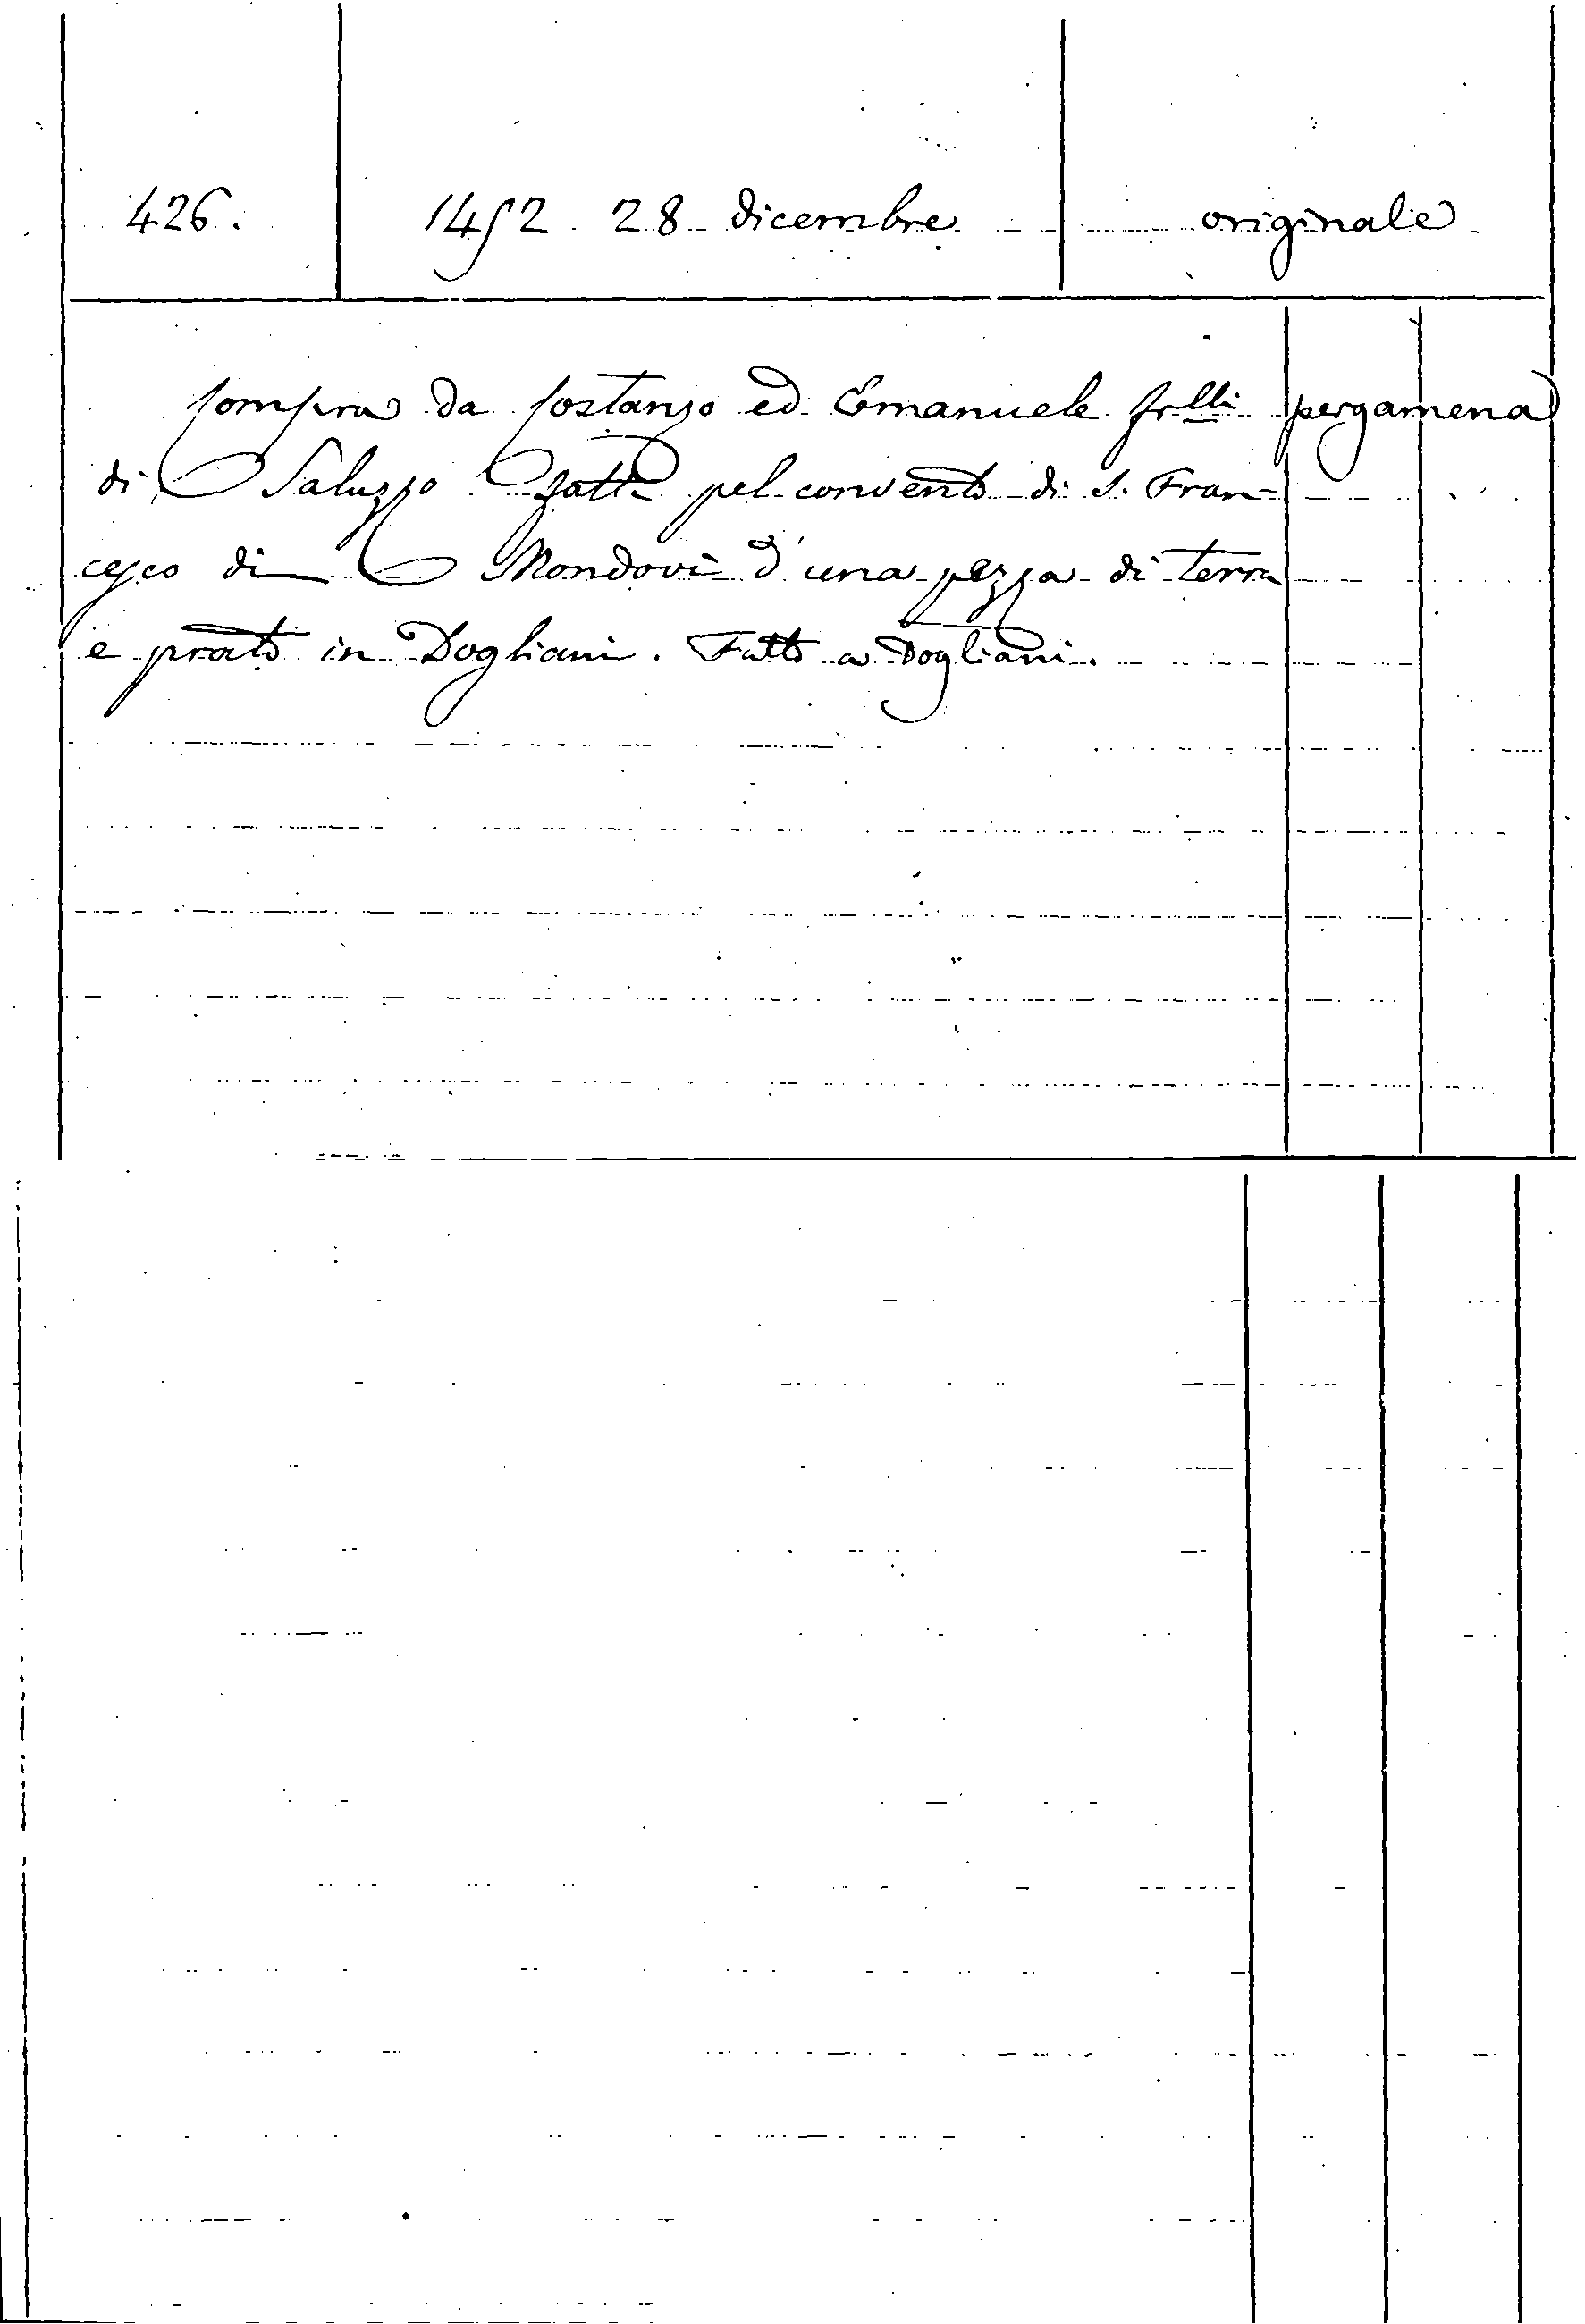 426. 1452 28 dicembre originale
Compra da Costanzo ed Emanuele frlli pergamena
di Saluzzo fatta pel convento di S. Fran=
cesco di Mondovì d'una pezza di terra
e prato in Dogliani. Fatto a Dogliani.